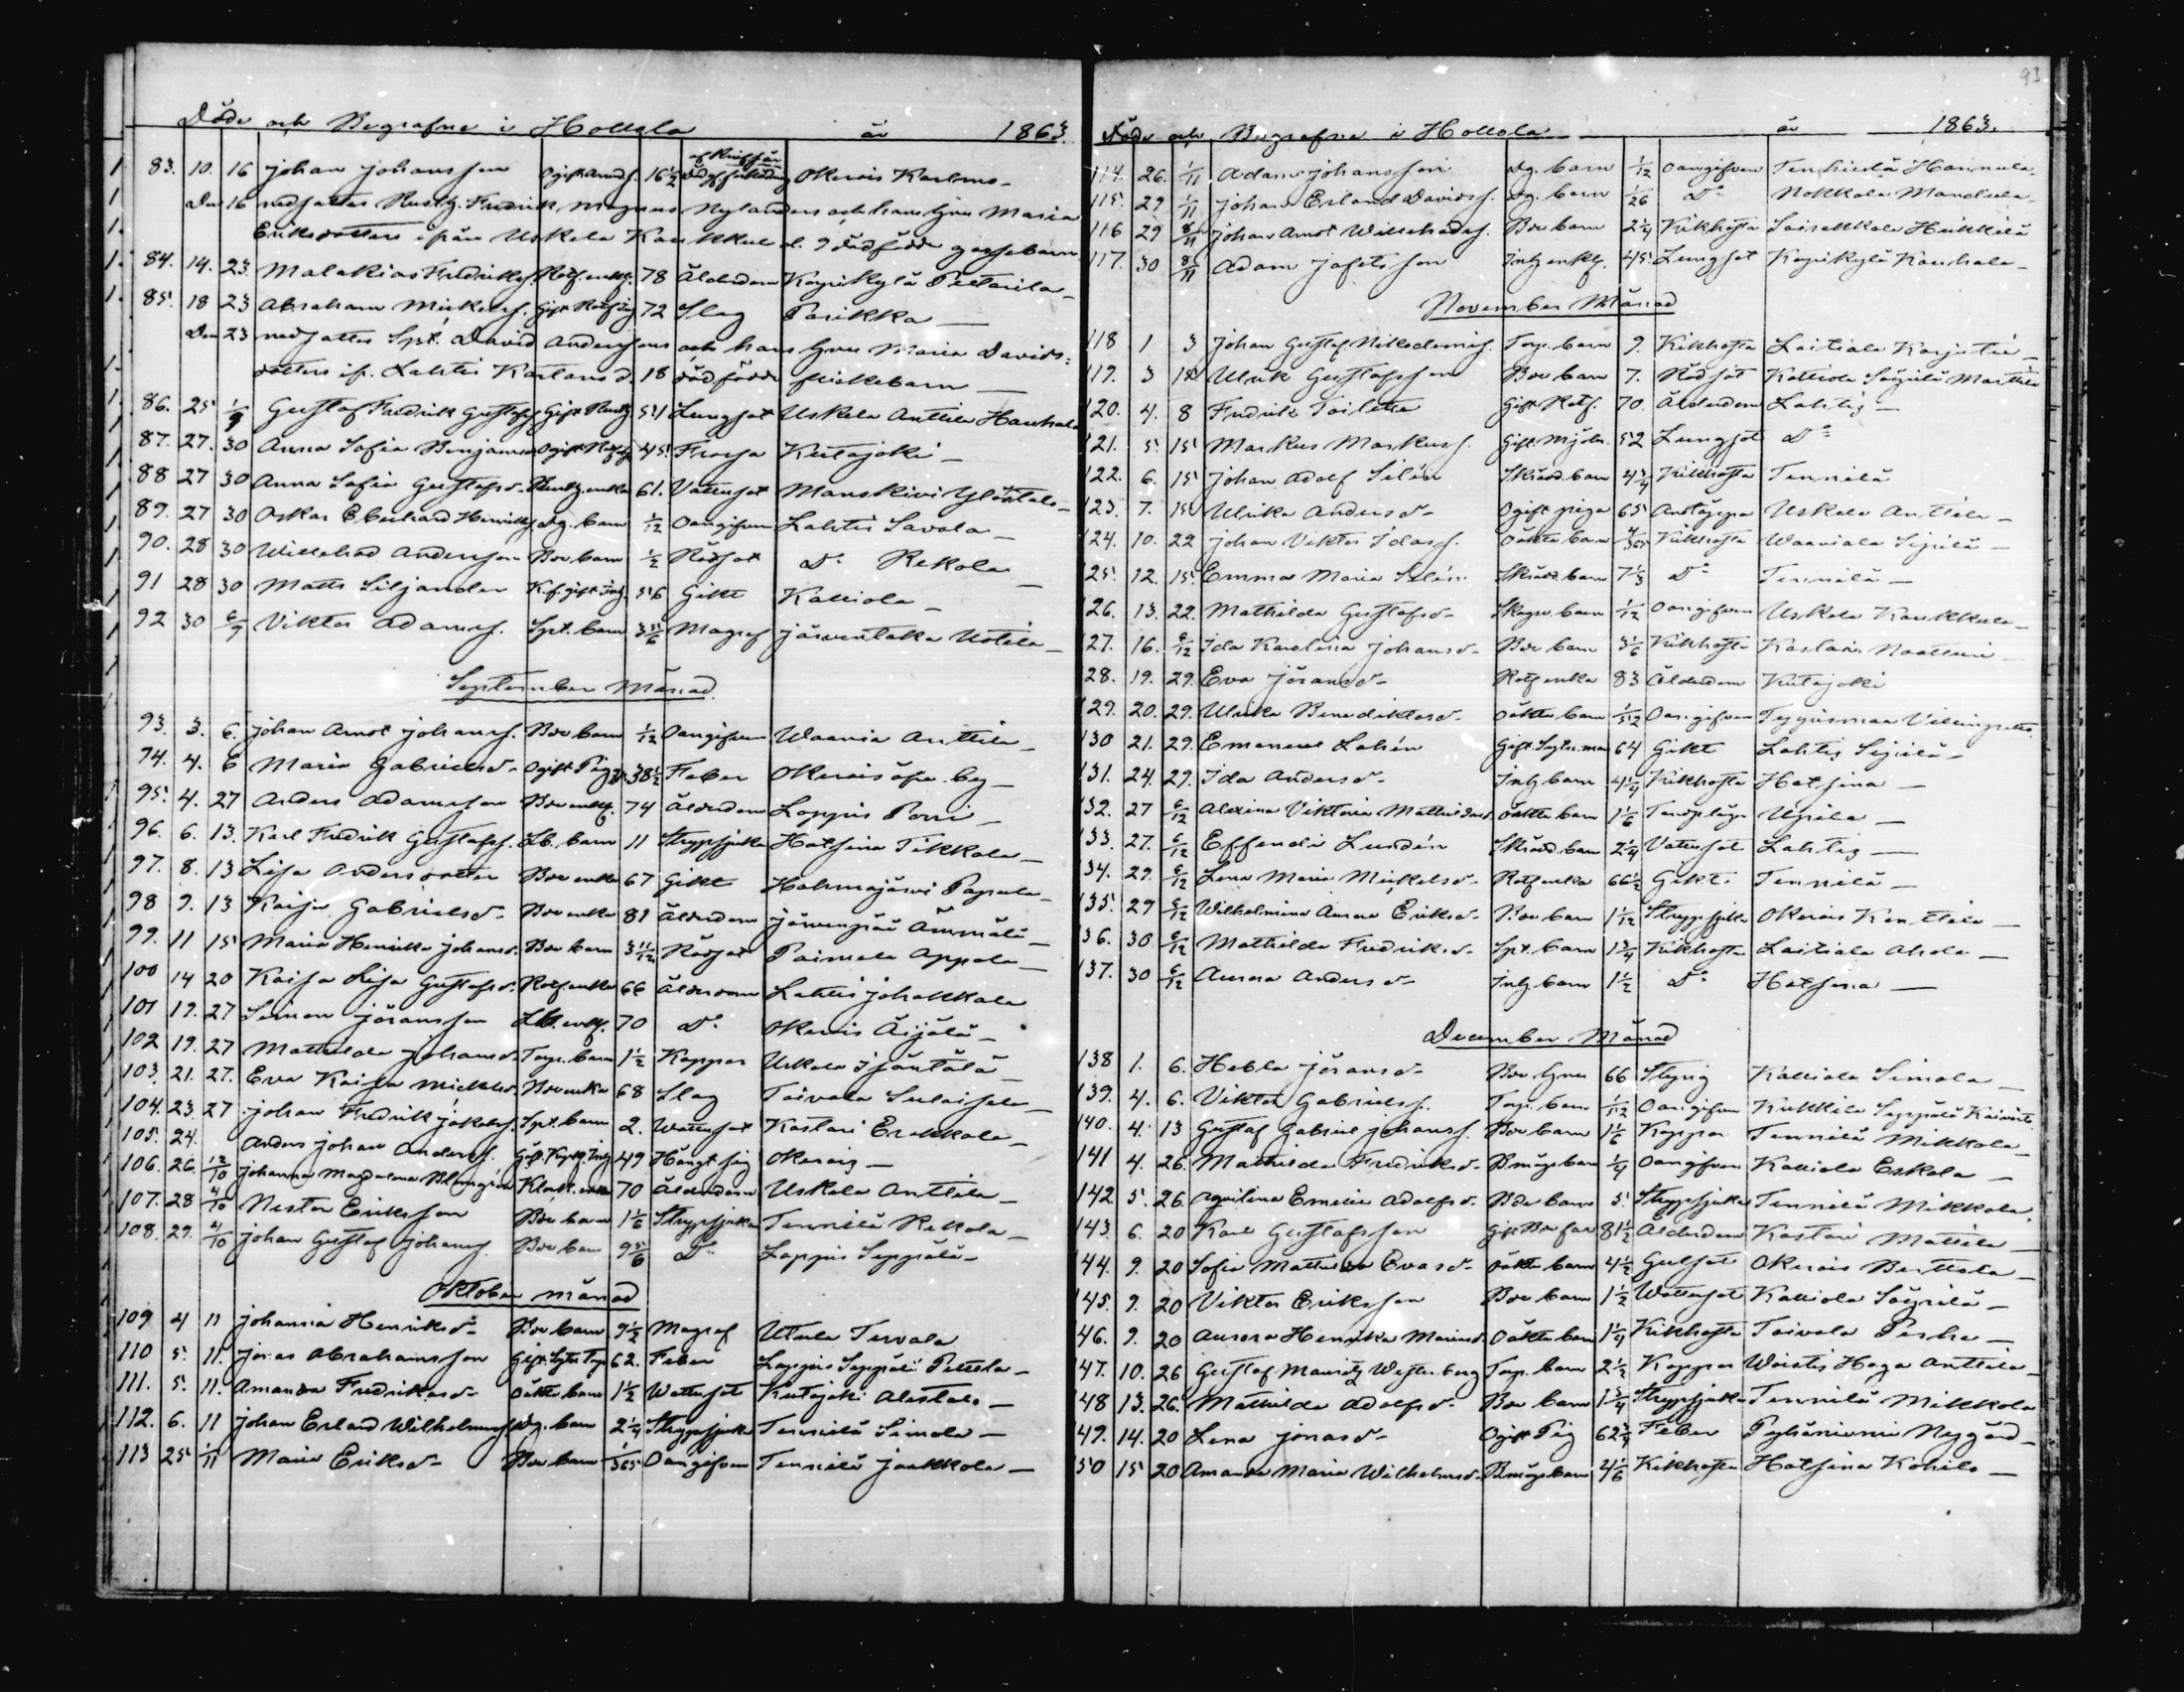 Döde och Begrafne i Hollola år 1863.
83. 10. 16 Johan Johansson Ogift 16 1/2 Okerois Karlmo -
Den 16 nedsattes Rusth. Fredrik Magnus Nylanders och hans hru Maria
Eriksdotters ifrån Uskela Kaukkul d. 9 dödfödde gossebarn
84. 14. 23. Malakias Fredrikss. 78 Ålderdom Kapikylä Pietarila -
85. 18 23 Abraham Mickelss. Gift 72 Slag Parikka -
Den 23 nedsattes Spt. David Anderssons och hans hru Maria Davids-
dotters ifr. Lahtis Karlans d. 18 dödfödde flickebarn -
86. 25 1/9 Gustaf Fredrik Gustafss. Gift 51 Lungsot Uskela Anttila Hauhala
87. 27. 30 Anna Sofia Benjamins Ogift 45 Frossa Kutajoki -
88 27 30 Anna Sofia Gustafsd. enka 61. Vattusot Manskivi Ylöstalo -
89. 27 30 Oskar Eberhard Henrikss. dg. barn 1/12 Oangifven Lahtis Savola -
90. 28 30 Willehad Andersson Bde barn 1/2 Rödsot D:o Rekola -
91 28 30 Matts Siljander K.f. gift Inh. 56 Gikt Kalliola -
92 30 6/9 Viktor Adamss. Spt. barn 3 5/6 Magref Järventaka Uotila -
September Månad.
93. 3. 6. Johan Arnot Johanss. Bde barn 1/12 Oangifven Waania Anttila -
94. 4. 6 Maria Gabrielsd. Ogift Piga 38 1/2 Feber Okerois öfre by -
95. 4. 27 Anders Adamsson Bde enkl. 74 Ålderdom Loppis Porri -
96. 6. 13. Karl Fredrik Gustafss. Lb. barn 11 Strypsjuka Hatsina Tikkala -
97. 8. 13 Lisa Andersdotter Bde enka 67 Gikt Hahmajärvi Papula -
98 9. 13 Kaisa Gabrielsd. Bde enka 81 Ålderdom Järvenpää Ämmälä -
99. 11 15 Maria Henrika Johansd. Bde barn 3 11/12 Rödsot Paimela Appola -
100 14 20 Kaisa Lisa Gustafsd. Rotf. enka 66 Ålderdom Lahtis Johakkala
101 19. 27 Simon Jöransson Lb. enkl. 70 D:o Okerois Äijälä -
102 19. 27 Mathilda Johansd. Torp. barn 1 1/2 Koppor Uskela Isäntälä -
103. 21. 27. Eva Kaisa Mickelsd. Bde enka 68 Slag Toivola -
104. 23. 27 Johan Fredrik Jakobss. Spt. barn 2. Wattusot Kastari Erkkola -
105. 24. Anders Johan Anderss. Gift 49 Hängt sig Okerois -
106. 26. 12/10 Johanna Magdalena Blomgrén Klock. enka 70 Ålderdom Uskela Anttila -
107. 28 4/10 Nestor Eriksson Bde barn 1 1/6 Strypsjuka Tennilä Rekola -
108. 29. 4/10 Johan Gustaf Johanss. Bde barn 9 5/6 D:o Loppis Seppälä -
Oktober månad
109 4 11 Johanna Henriksd. Bde barn 9 1/2 Magref Utula Tervala
110 5. 11. Jonas Abrahamsson Gift 62. Feber Loppis Seppälä Pettila -
111. 5. 11. Amanda Fredrikasd. Oäkta barn 1 1/2 Wattusot Kutajoki Alastalo -
112. 6. 11 Johan Erland Wilhelmss. dg. barn 2 1/4 Strypsjuka Tennilä Simola -
113 25 1/11 Maria Eriksd. Bde barn 1/365 Oangifven Tennilä Jaakkola -
93
Döde och Begrafne i Hollola - år 1863.
114. 26. 1/11 Adam Johansson dg. barn 1/12 Oangifven Tenhiälä Hannula
115. 29 1/11 Johan Erland Davidss. dg. barn 1/26 D:o Nokkola Mandula -
116 29 8/11 Johan Arnot Willehadss. Bde barn 2 1/4 Kikhosta Sairakkala Heikkilä
117. 30 8/11 Adam Jafetsson Inh. enkl. 45. Lungsot Kapikylä Kauhala -
November Månad
118 1 3 Johan Gustaf Nikodemiss. Torp. barn 9. Kikhosta Laitiala -
119. 3 Ulrik Gustafsson Bde barn 7. Rödsot Kalliola Säyrilä Marttila
120. 4. 8 Fredrik Toiletta Gift Rotf. 70. Ålderdom Lahtis -
121. 5. 15 Markus Markuss. Gift Mjöln. 52 Lungsot D:o
122. 6. 15 Johan Adolf Silén Skrädd. barn 4 3/4 Kikhosta Tennilä
123. 7. 15 Ulrika Andersd. Ogift piga 65 Andtäppa Uskela Anttila -
124. 10. 22 Johan Viktor Idass. Oäkta barn 4/365 Kikhosta Waaniala Sipilä -
125. 12. 15. Emma Maria Silén Skrädd. barn 7 1/3 D:o Tennilä -
126. 13. 22. Mathilda Gustafsd. barn 1/12 Oangifven Uskela Kaukkula -
127. 16. 6/12 Ida Karolina Johansd. Bde barn 3 1/6 Kikhosta Kastari Naatturi
128. 19. 29. Eva Jöransd. Rotf. enka 83 Ålderdom Kutajoki
129. 20. 29. Ulrika Benediktasd. Oäkta barn 1/52 Oangifven Tyyrismaa
130 21. 29. Emanuel Lahén Gift 64 Gikt Lahtis Sipilä -
131. 24. 29. Ida Andersd. Inh. barn 4 1/4 Kikhosta Hatsina -
132. 27 6/12 Alexina Viktoria Mathildasd. Oäkta barn 1 1/6 Tandplåga Upila -
133. 27. 6/12 Effendi Lundén Skrädd. barn 2 1/4 Vattusot Lahtis -
134. 29. 6/12 Lena Maria Mickelsd. Rotf. enka 66 1/2 Gikt Tennilä -
135. 29 6/12 Wilhelmina Aurora Eriksd. Bde barn 1 1/12 Strypsjuka Okerois Kanttila -
136. 30 6/12 Mathilda Fredriksd. Spt. barn 1 3/4 Kikhosta Laitiala Ahola -
137. 30 6/12 Aurora Andersd. Inh. barn 1 1/2 D:o Hatsina -
December Månad
138 1. 6. Hebla Jöransd. Bde hru 66 Styng Kalliola Simola -
139. 4. 6. Viktor Gabrielss. Torp. barn 1/52 Oangifven Kukkila Seppälä
140. 4. 13 Gustaf Gabriel Johanss. Bde barn 1 1/6 Koppor Tennilä Mikkola -
141 4. 26. Mathilda Fredriksd. Bmågs barn 1/4 Oangifven Kalliola Erkola -
142. 5. 26. Aqvilina Emelia Adolfsd. Bde barn 5. Strypsjuka Tennilä Mikkola.
143. 6. 20 Karl Gustafsson Gift Bde far 81 1/2 Ålderdom Kastari Mattila -
144. 9. 20 Sofia Mathilda Evasd. Oäkta barn 4 1/2 Gulsot Okerois Berttala -
145. 9. 20 Viktor Eriksson Bde barn 1 1/2 Wattusot Kalliola Säyrilä -
146. 9. 20 Aurora Henrika Mariasd. Oäkta barn 1 1/4 Kikhosta Toivola Perho -
147. 10. 26 Gustaf Mauritz Westerberg Torp. barn 2 1/2 Koppor Woistis Haga Anttila -
148 13. 26. Mathilda Adolfsd. Bde barn 1 3/4 Strypsjuka Tennilä Mikkola
149. 14. 20 Lena Jonasd. Ogift Pig 62 3/4 Feber Pyhäniemi Nygård -
150 15 20 Amanda Maria Wilhelmsd. Bmågs barn 4 1/6 Kikhosta Hatsina Kohilo -